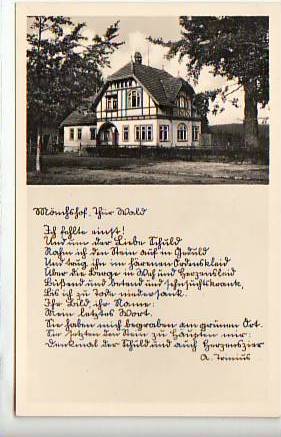 Mönchshof, Thür Wald
Ich fehlte einst!
Und um der Liebe Schuld
Nahm ich den Stein auf in Geduld
Und trug ihn im härenen Ordenskleid
Über die Berge in Weh und Herzensleid
Büßend und betend und sehnsuchtskrank,
Bis ich zu Tode niedersank.
Ihr Bild, ihr Name:
Mein letztes Wort.
Sie haben mich begraben am grünen Ort.
Sie setzten den Stein zu Häupten mir
Denkmal der Schuld und auch Herzenszier
A. Trinius